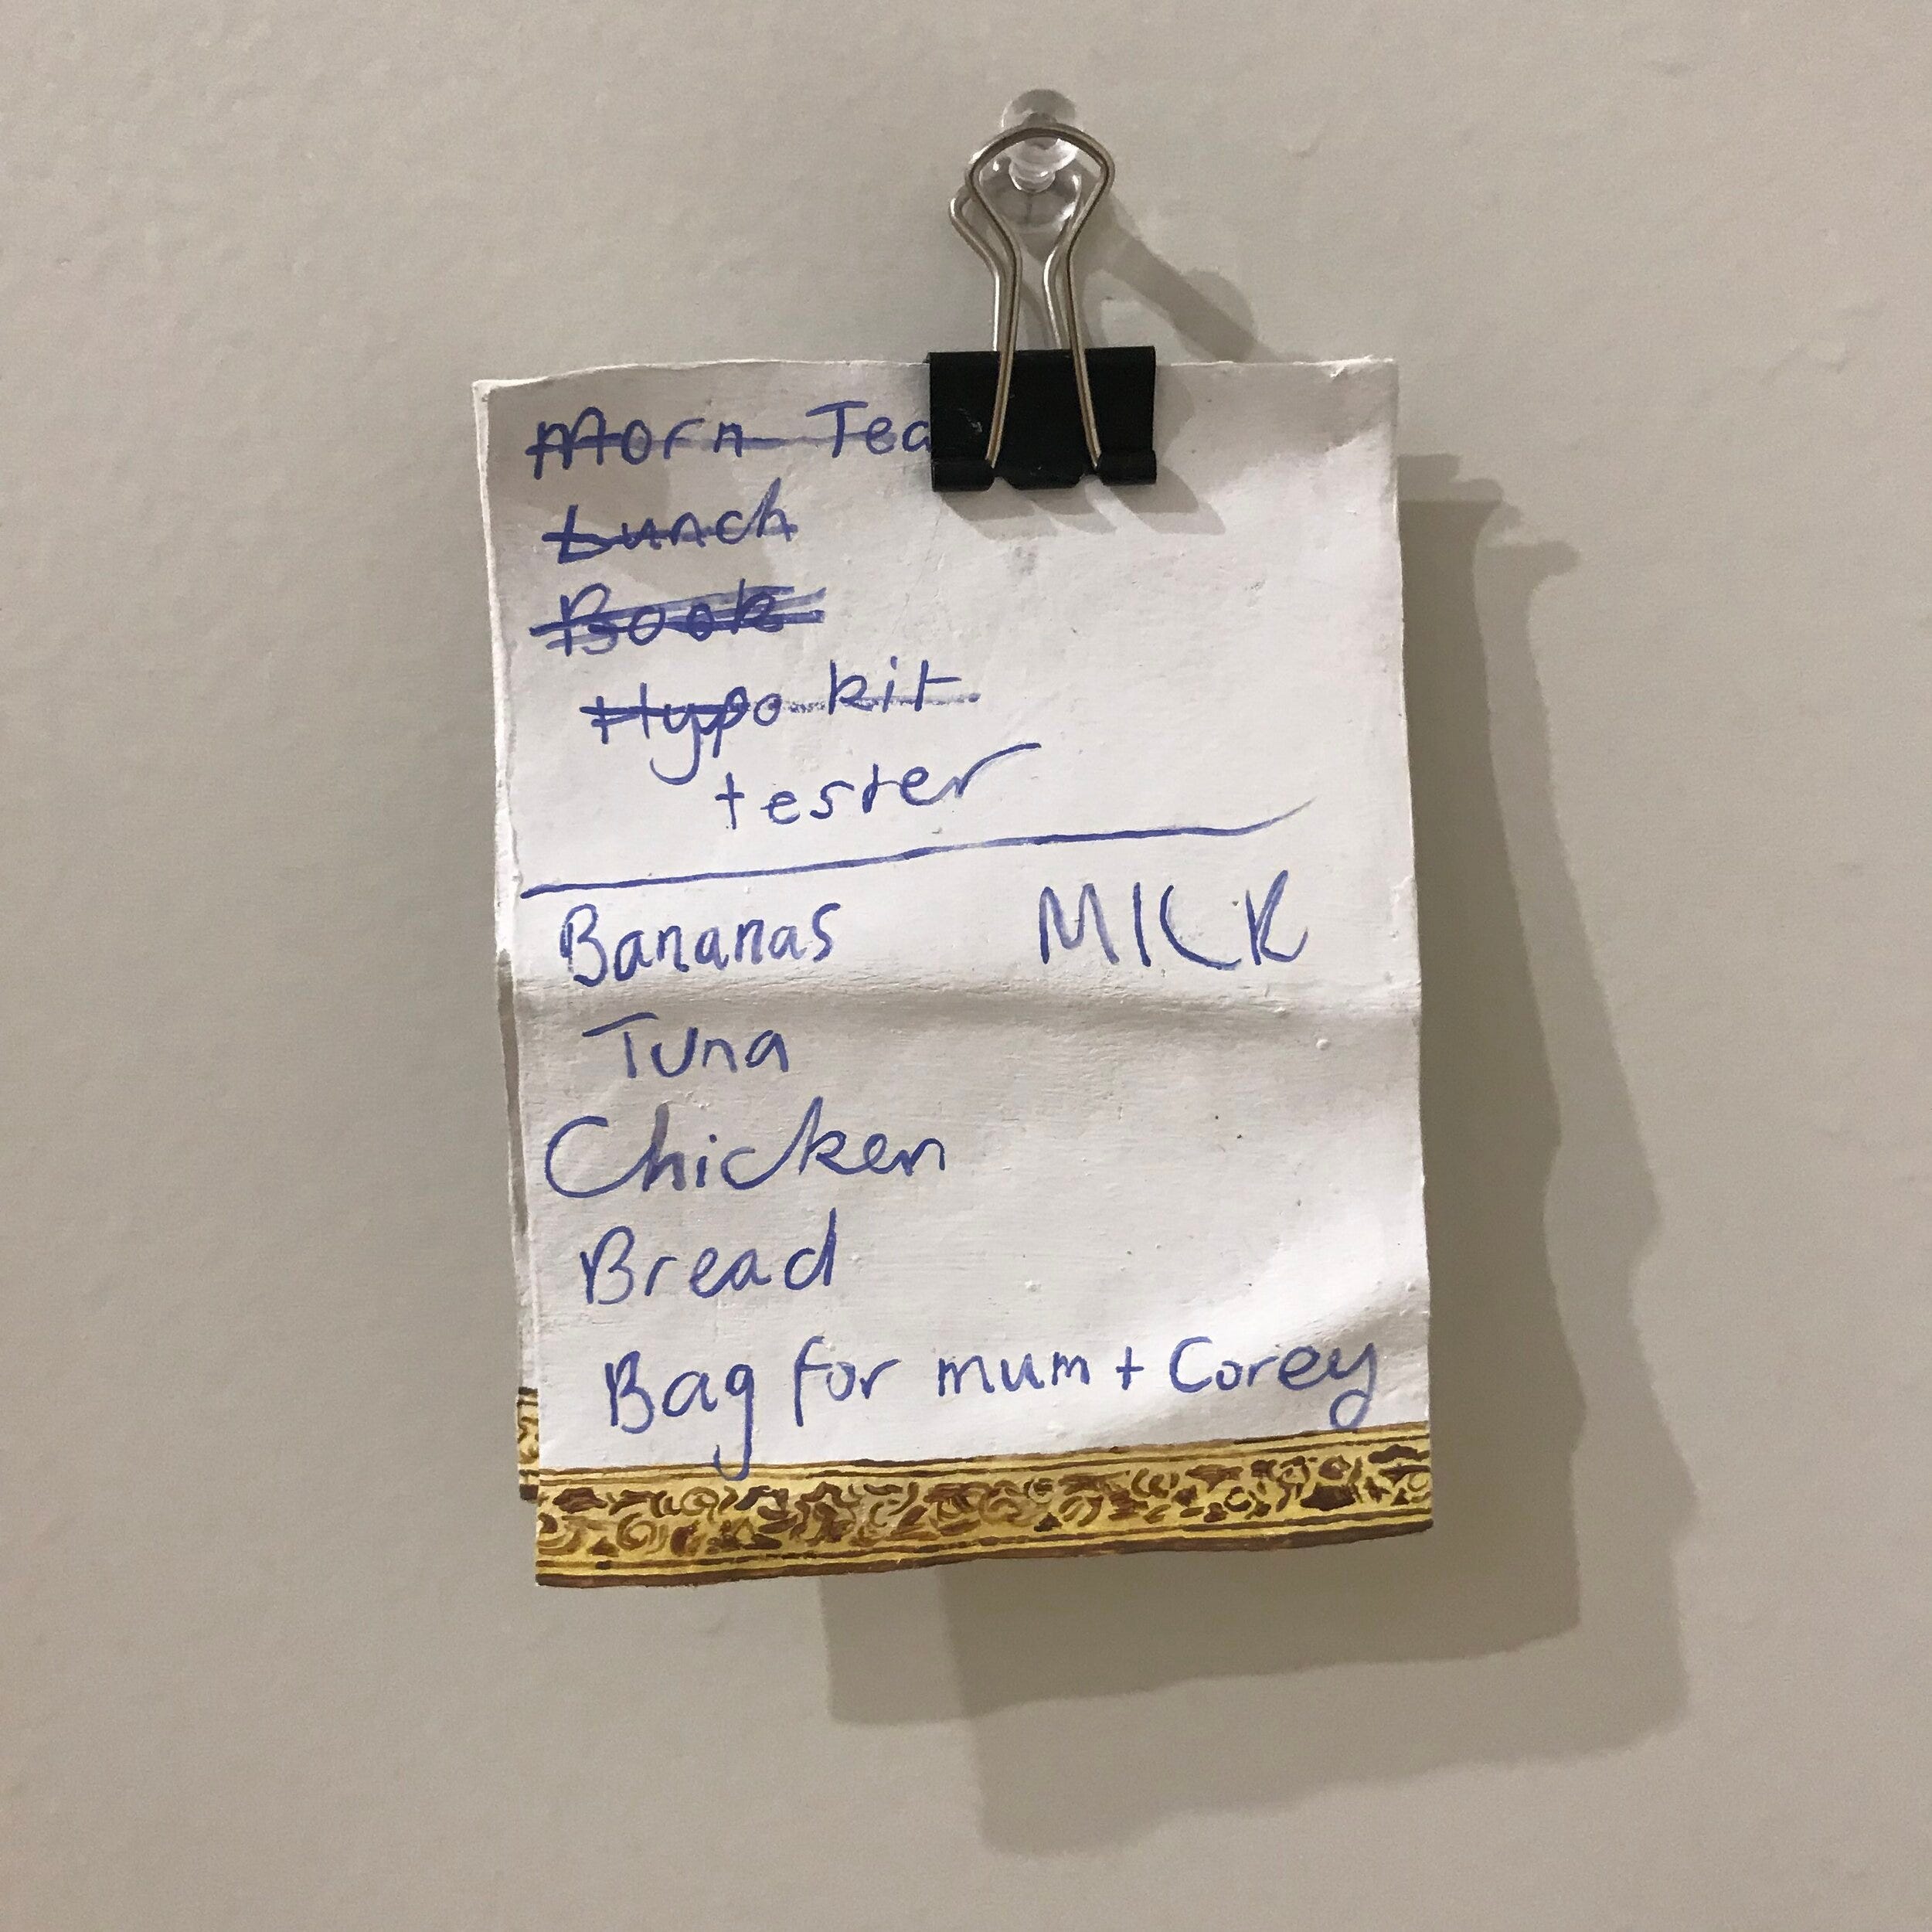 Morn Tea
Lunch
Book
Hypo kit
tester
Bananas MILK
Tuna
Chicken
Bread
Bag for mum + Corey